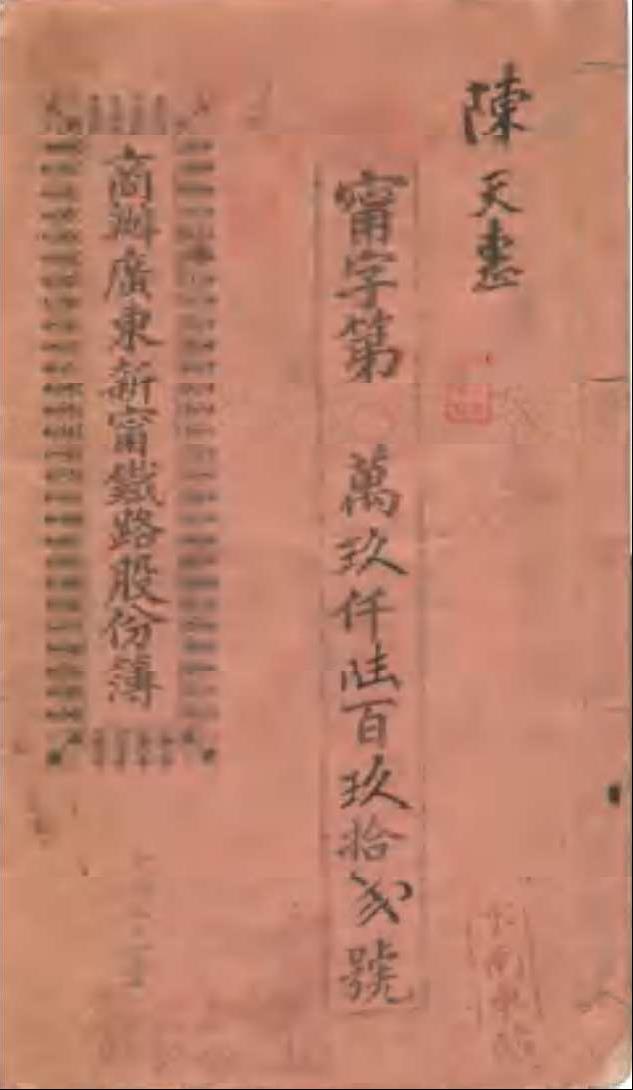 陳天惠
甯字第 萬玖仟陆百玖拾弍號
商辦廣東新甯鐵路股份簿